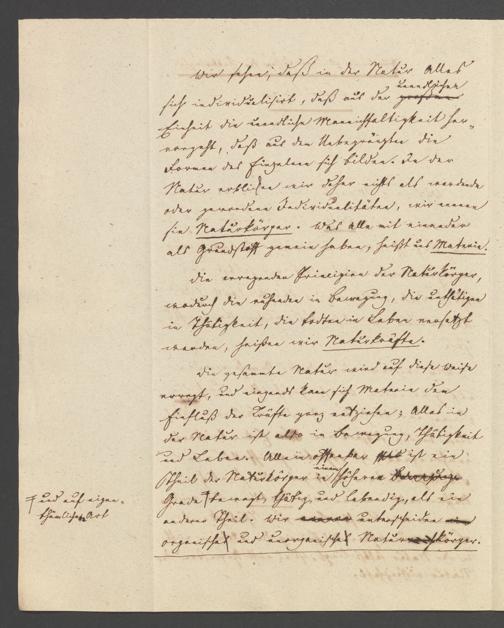 Wir sehen, daß in der Natur Alles
sich individualisirt, daß aus der großen unendlichen
Einheit die unendliche Mannichfaltigkeit her-
vorgeht, daß aus den Unbegränzten die
Formen des Einzelnen sich bilden. In der
Natur erblicken wir daher nichts als werdende
oder gewordene Individualitäten, wir nennen
sie Naturkörper. Was alle mit einander
als Grundstoff gemein haben, heißt uns Materie.
Die erregenden Principien der Naturkörper,
wodurch die ruhenden in Bewegung, die unthätigen
in Thätigkeit, die todten in Leben versetzt
werden, heißen wir Naturkräfte.
Die gesamte Natur wird auf diese Weise
erregt, und nirgends kann sich Materie dem
Einfluß der Kräfte ganz entziehen; Alles in
der Natur ist also in Bewegung, Thätigkeit
und Leben. Allein offenbar ist ein
Theil der Naturkörper in einem höheren
Grade bewegt, thätig und lebendig, als ein
anderer Theil. Wir unterscheiden
organische und unorganische Naturkörper.
und auf eigen-
thümliche Art